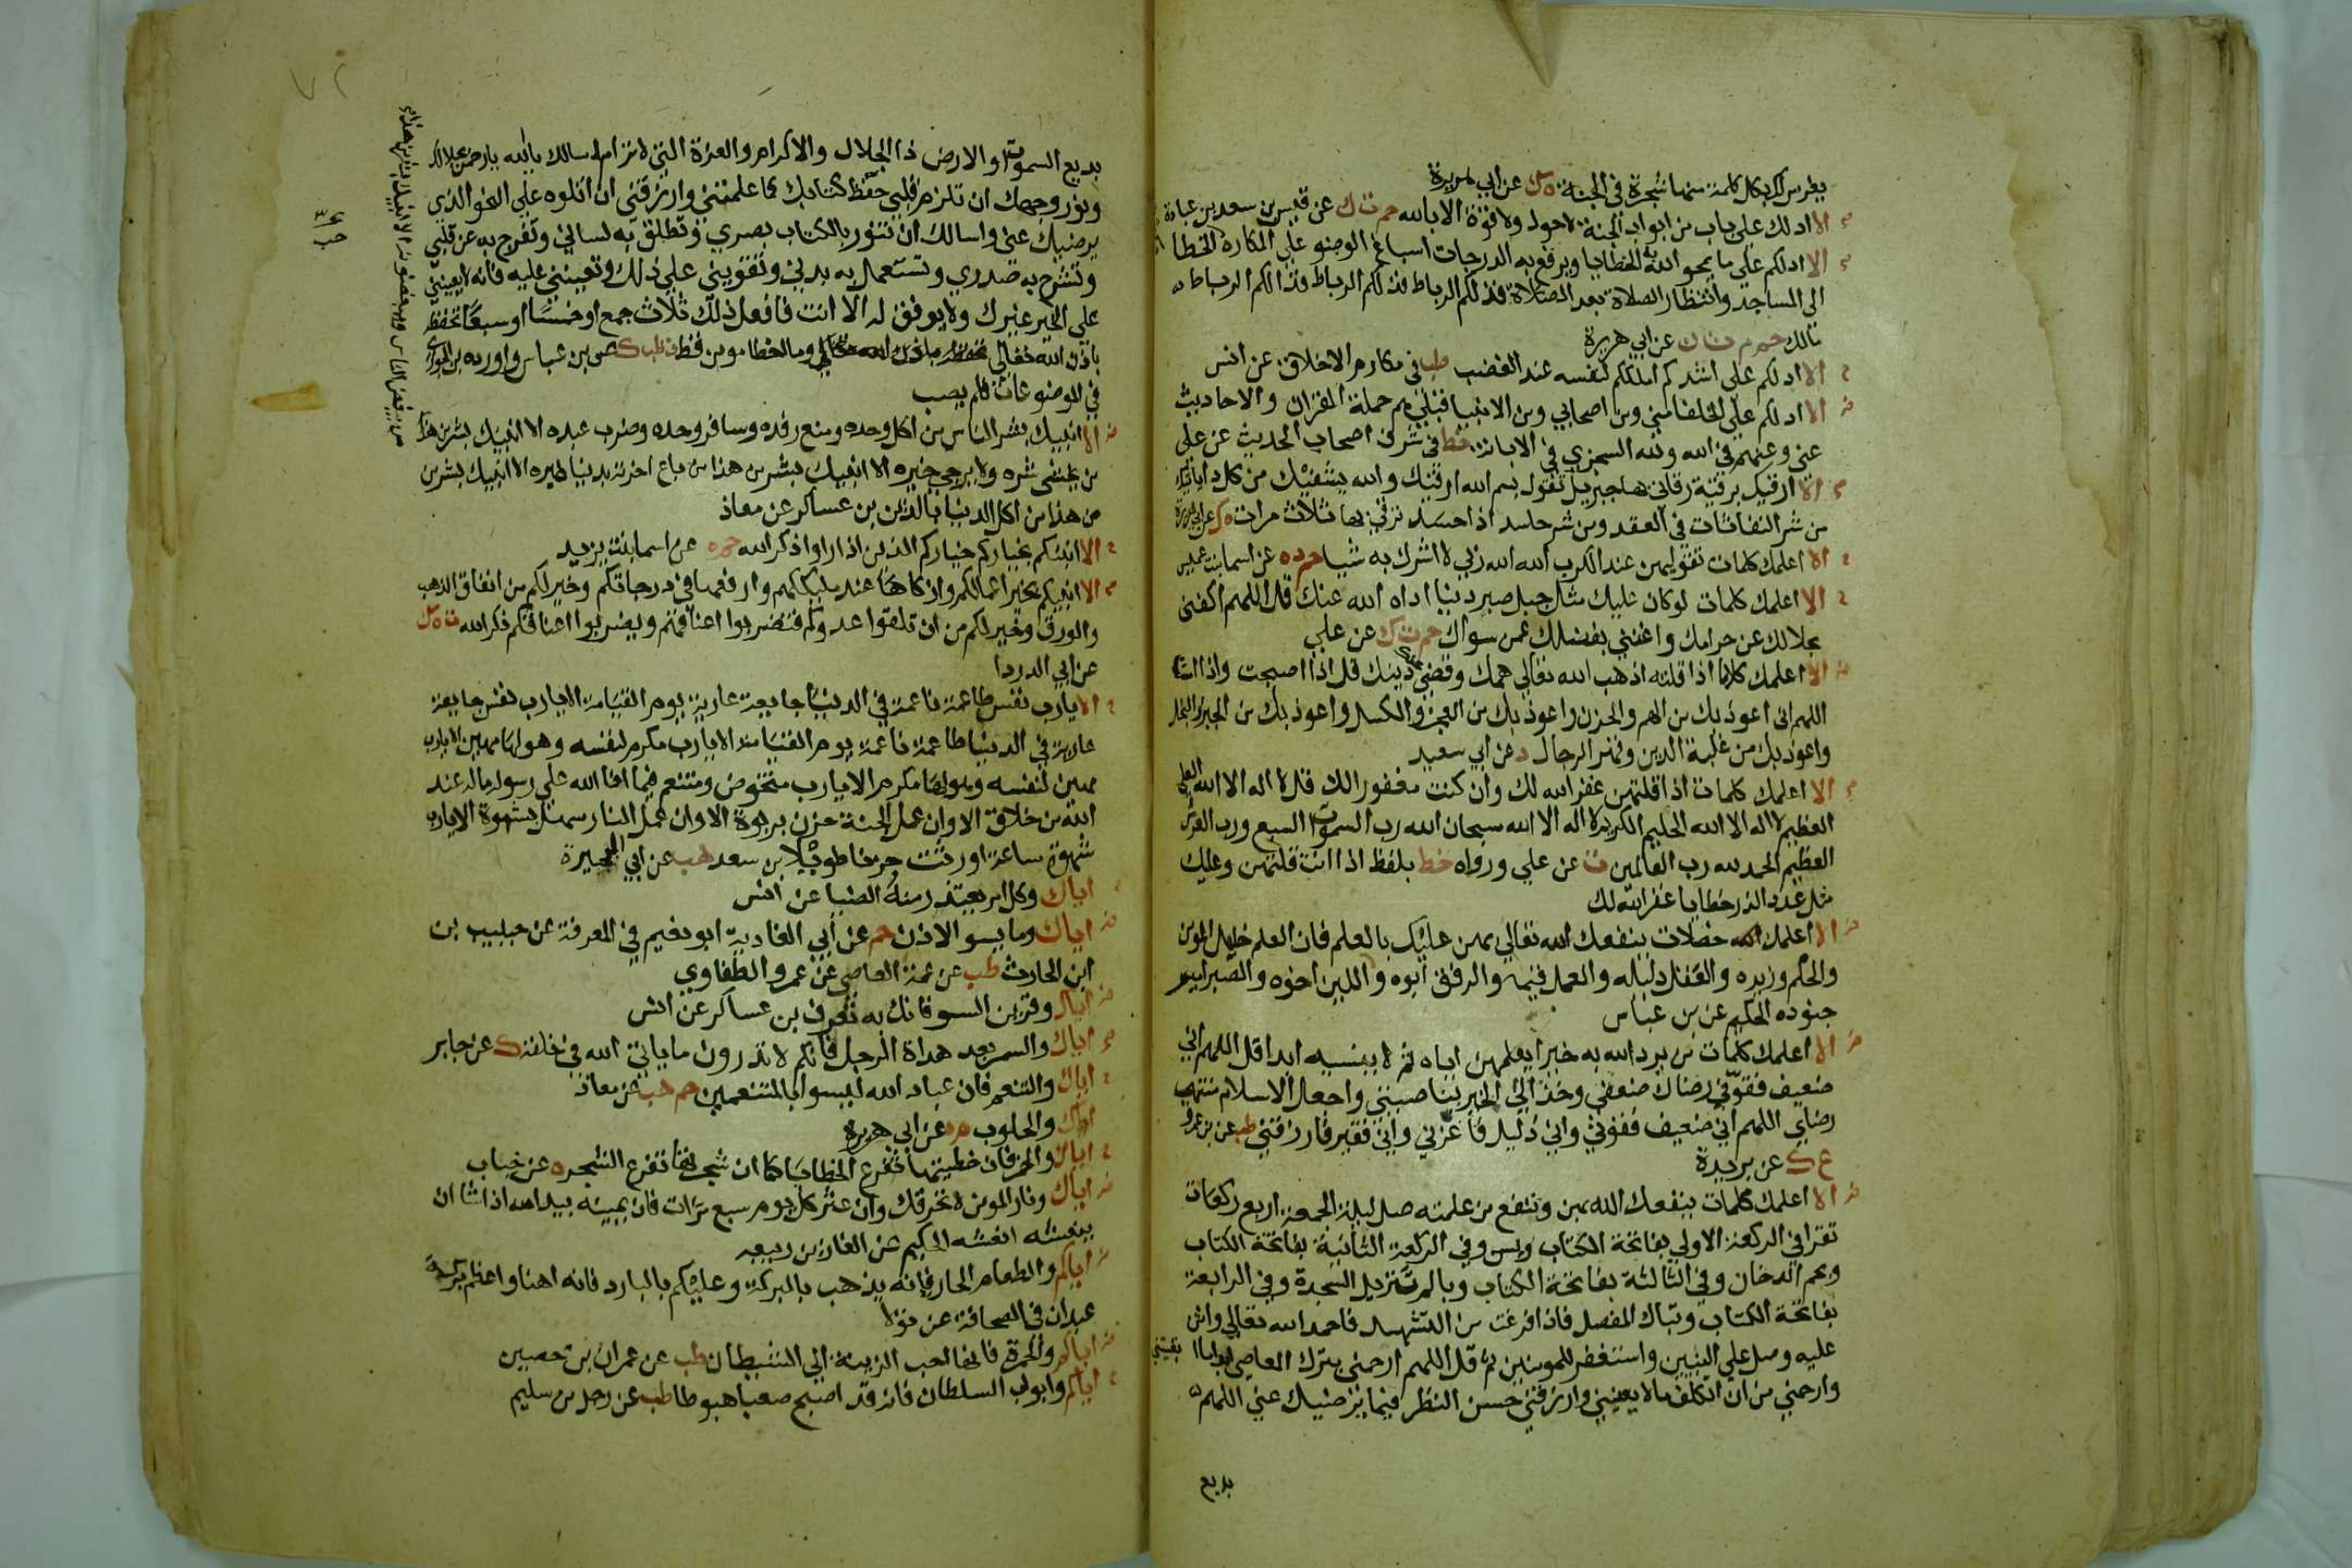 يغرس لك بكل كلمة منها شجرة في الجنة ه ك عن ابي هريرة
الا ادلك على باب من ابواب الجنة لاحول ولا قوة الا بالله حم ت ك عن قيس بن سعد بن عبادة
الا ادلكم على ما يمحو الله به الخطايا ويرفع به الدرجات اسباغ الوضو على المكاره الخطا
الى المساجد وانتظار الصلاة بعد الصلاة فذلكم الرباط فذلكم الرباط فذالكم الرباط
مالك حم م ت ن عن ابي هريرة
الا ادلكم على اشدكم املككم لنفسه عند الغضب طب في مكارم الاخلاق عن انس
الا ادلكم على الخلفا مني ومن اصحابي ومن الانبيا قبلي هم حملة القران والاحاديث
عني وعنهم في الله ولله السجزي في الابانة خط في شرف اصحاب الحديث عن علي
الا ارقيك برقية رقاني بها جبريل تقول بسم الله ارقيك والله يشفيك من كل داء ياتيك
من شر النفاثات في العقد ومن شر حاسد اذا حسد ترقي بها ثلاث مرات ه ك عن ابي هريرة
الا اعلمك كلمات تقوليهن عند الكرب الله الله ربي لا اشرك به شيا حم د ه عن اسما بنت عميس
الا اعلمك كلمات لوكان عليك مثل جبل صبير دينا اداه الله عنك قل اللهم اكفني
بحلالك عن حرامك واغنني بفضلك عمن سواك حم ت ك عن علي
الا اعلمك كلاما اذا قلته اذهب الله تعالى همك وقضى عنك دينك قل اذا اصبحت واذا امسيت
اللهم اني اعوذ بك من الهم والحزن واعوذ بك من العجز والكسل واعوذ بك من الجبن والبخل
واعوذ بك من غلبة الدين وقهر الرجال د عن ابي سعيد
الا اعلمك كلمات اذا قلتهن غفر الله لك وان كنت مغفورا لك قل لا اله الا الله العلي
العظيم لا اله الا الله الحليم الكريم لا اله الا الله سبحان الله رب السموات السبع ورب العرش
العظيم الحمد لله رب العالمين ت عن علي ورواه خط بلفظ اذا انت قلتهن وعليك
مثل عدد الذر خطايا غفر الله لك
الا اعلمك خصلات ينفعك الله تعالى بهن عليك بالعلم فان العلم خليل المومن
والحلم وزيره والعقل دليله والعمل قيمه والرفق ابوه واللين اخوه والصبر امير
جنوده الحكيم عن بن عباس
الا اعلمك كلمات من يرد الله به خيرا يعلمهن اياه ثم لا ينسيه ابدا قل اللهم اني
ضعيف فقوّني رضاك ضعفي وخذ الى الخير بناصيتي واجعل الاسلام منتهى
رضاي اللهم اني ضعيف فقوني واني ذليل فاعزني واني فقير فارزقني طب عن بن عمرو
ع ك عن بريدة
الا اعلمك كلمات ينفعك الله بهن وتنفع من علمته صل ليلة الجمعة اربع ركعات
تقرا في الركعة الاولى بفاتحة الكتاب ويس وفي الركعة الثانية بفاتحة الكتاب
وبحم الدخان وفي الثالثة بفاتحة الكتاب وبالم تنزيل السجدة وفي الرابعة
بفاتحة الكتاب وتبارك المفصل فاذا فرغت من التشهد فاحمد الله تعالى واثن
عليه وصل على النبيين واستغفر للمومنين ثم قل اللهم ارحمني بترك المعاصي ابدا ما بقيتني
وارحمني من ان اتكلف ما لا يعنيني وارزقني حسن النظر فيما يرضيك عني اللهم
بديع
بديع السموات والارض ذا الجلال والاكرام والعزة التي لا ترام اسالك يا الله يا رحمن بجلالك
ونور وجهك ان تلزم قلبي حفظ كتابك كما علمتني وارزقني ان اتلوه على النحو الذي
يرضيك عني واسالك ان تنور بالكتاب بصري وتطلق به لساني وتفرج به عن قلبي
وتشرح به صدري وتستعمل به بدني وتقويني على ذلك وتعينني عليه فانه لا يعينني
على الخير غيرك ولا يوفق له الا انت فافعل ذلك ثلاث جمع او خمسا او سبعا تحفظه
باذن الله تعالى وما اخطا مومن قط ت طب ك عن بن عباس واورده بن الجوزي
في الموضوعات فلم يصب
الا انبيك بشر الناس من اكل وحده ومنع رفده وسافر وحده وضرب عبده الا انبيك بشر من هذا
من يخشى شره ولا يرجى خيره الا انبيك بشر من هذا من باع اخرته بدنيا غيره الا انبيك بشر من
من هذا من اكل الدنيا بالدين بن عساكر عن معاذ
الا انبئكم بخياركم خياركم الذين اذا راوا ذكر الله حم ه عن اسما بنت يزيد
الا انبيكم بخير اعمالكم وازكاها عند مليككم وارفعها في درجاتكم وخير لكم من انفاق الذهب
والورق وخير لكم من ان تلقوا عدوكم فتضربوا اعناقهم ويضربوا اعناقكم ذكر الله ت ه ك
عن ابي الدردا
الا يارب نفس طاعمة ناعمة في الدنيا جايعة عارية يوم القيامة الا يارب نفس جايعة
عارية في الدنيا طاعمة ناعمة يوم القيامة الا يارب مكرم لنفسه وهو لها مهين الا يارب
مهين لنفسه وهو لها مكرم الا يارب متخوض ومتنعم فيما افا الله على رسوله ماله عند
الله من خلاق الا وان عمل الجنة حزن بربوة الا وان عمل النار سهل بشهوة الا يارب
شهوة ساعة اورثت حزنا طويلا بن سعد هب عن ابي البجيرة
اياك وكل امر يعتذر منه الضيا عن انس
اياك وما يسو الاذن حم عن ابي الغادية ابو نعيم في المعرفة عن حبيب بن
ابن الحارث طب عن عمة العاصي عن عمرو الطفاوي
اياك وقرين السو فانك به تعرف بن عساكر عن انس
اياك والسمر بعد هداة الرجل فانكم لا تدرون ما ياتي الله في خلقه ك عن جابر
اياك والتنعم فان عباد الله ليسوا بالمتنعمين حم هب عن معاذ
اياك والحلوب م ه عن ابي هريرة
اياك والخمر فان خطيتها تفرع الخطايا كما ان شجرتها تفرع الشجر ه عن خباب
اياك ونار المومن لا تحرقك وان عثر كل يوم سبع مرات فان يمينه بيد الله اذا شا ان
ينعشه انعشه الحكيم عن الغاز بن ربيعه
اياكم والطعام الحار فانه يذهب بالبركة وعليكم بالبارد فانه اهنا واعظم بركة
عبدان في الصحابة عن بولا
اياكم والحمرة فانها احب الزينة الى الشيطان طب عن عمران بن حصين
اياكم وابواب السلطان فانه قد اصبح صعبا هبوطا طب عن رجل من سليم